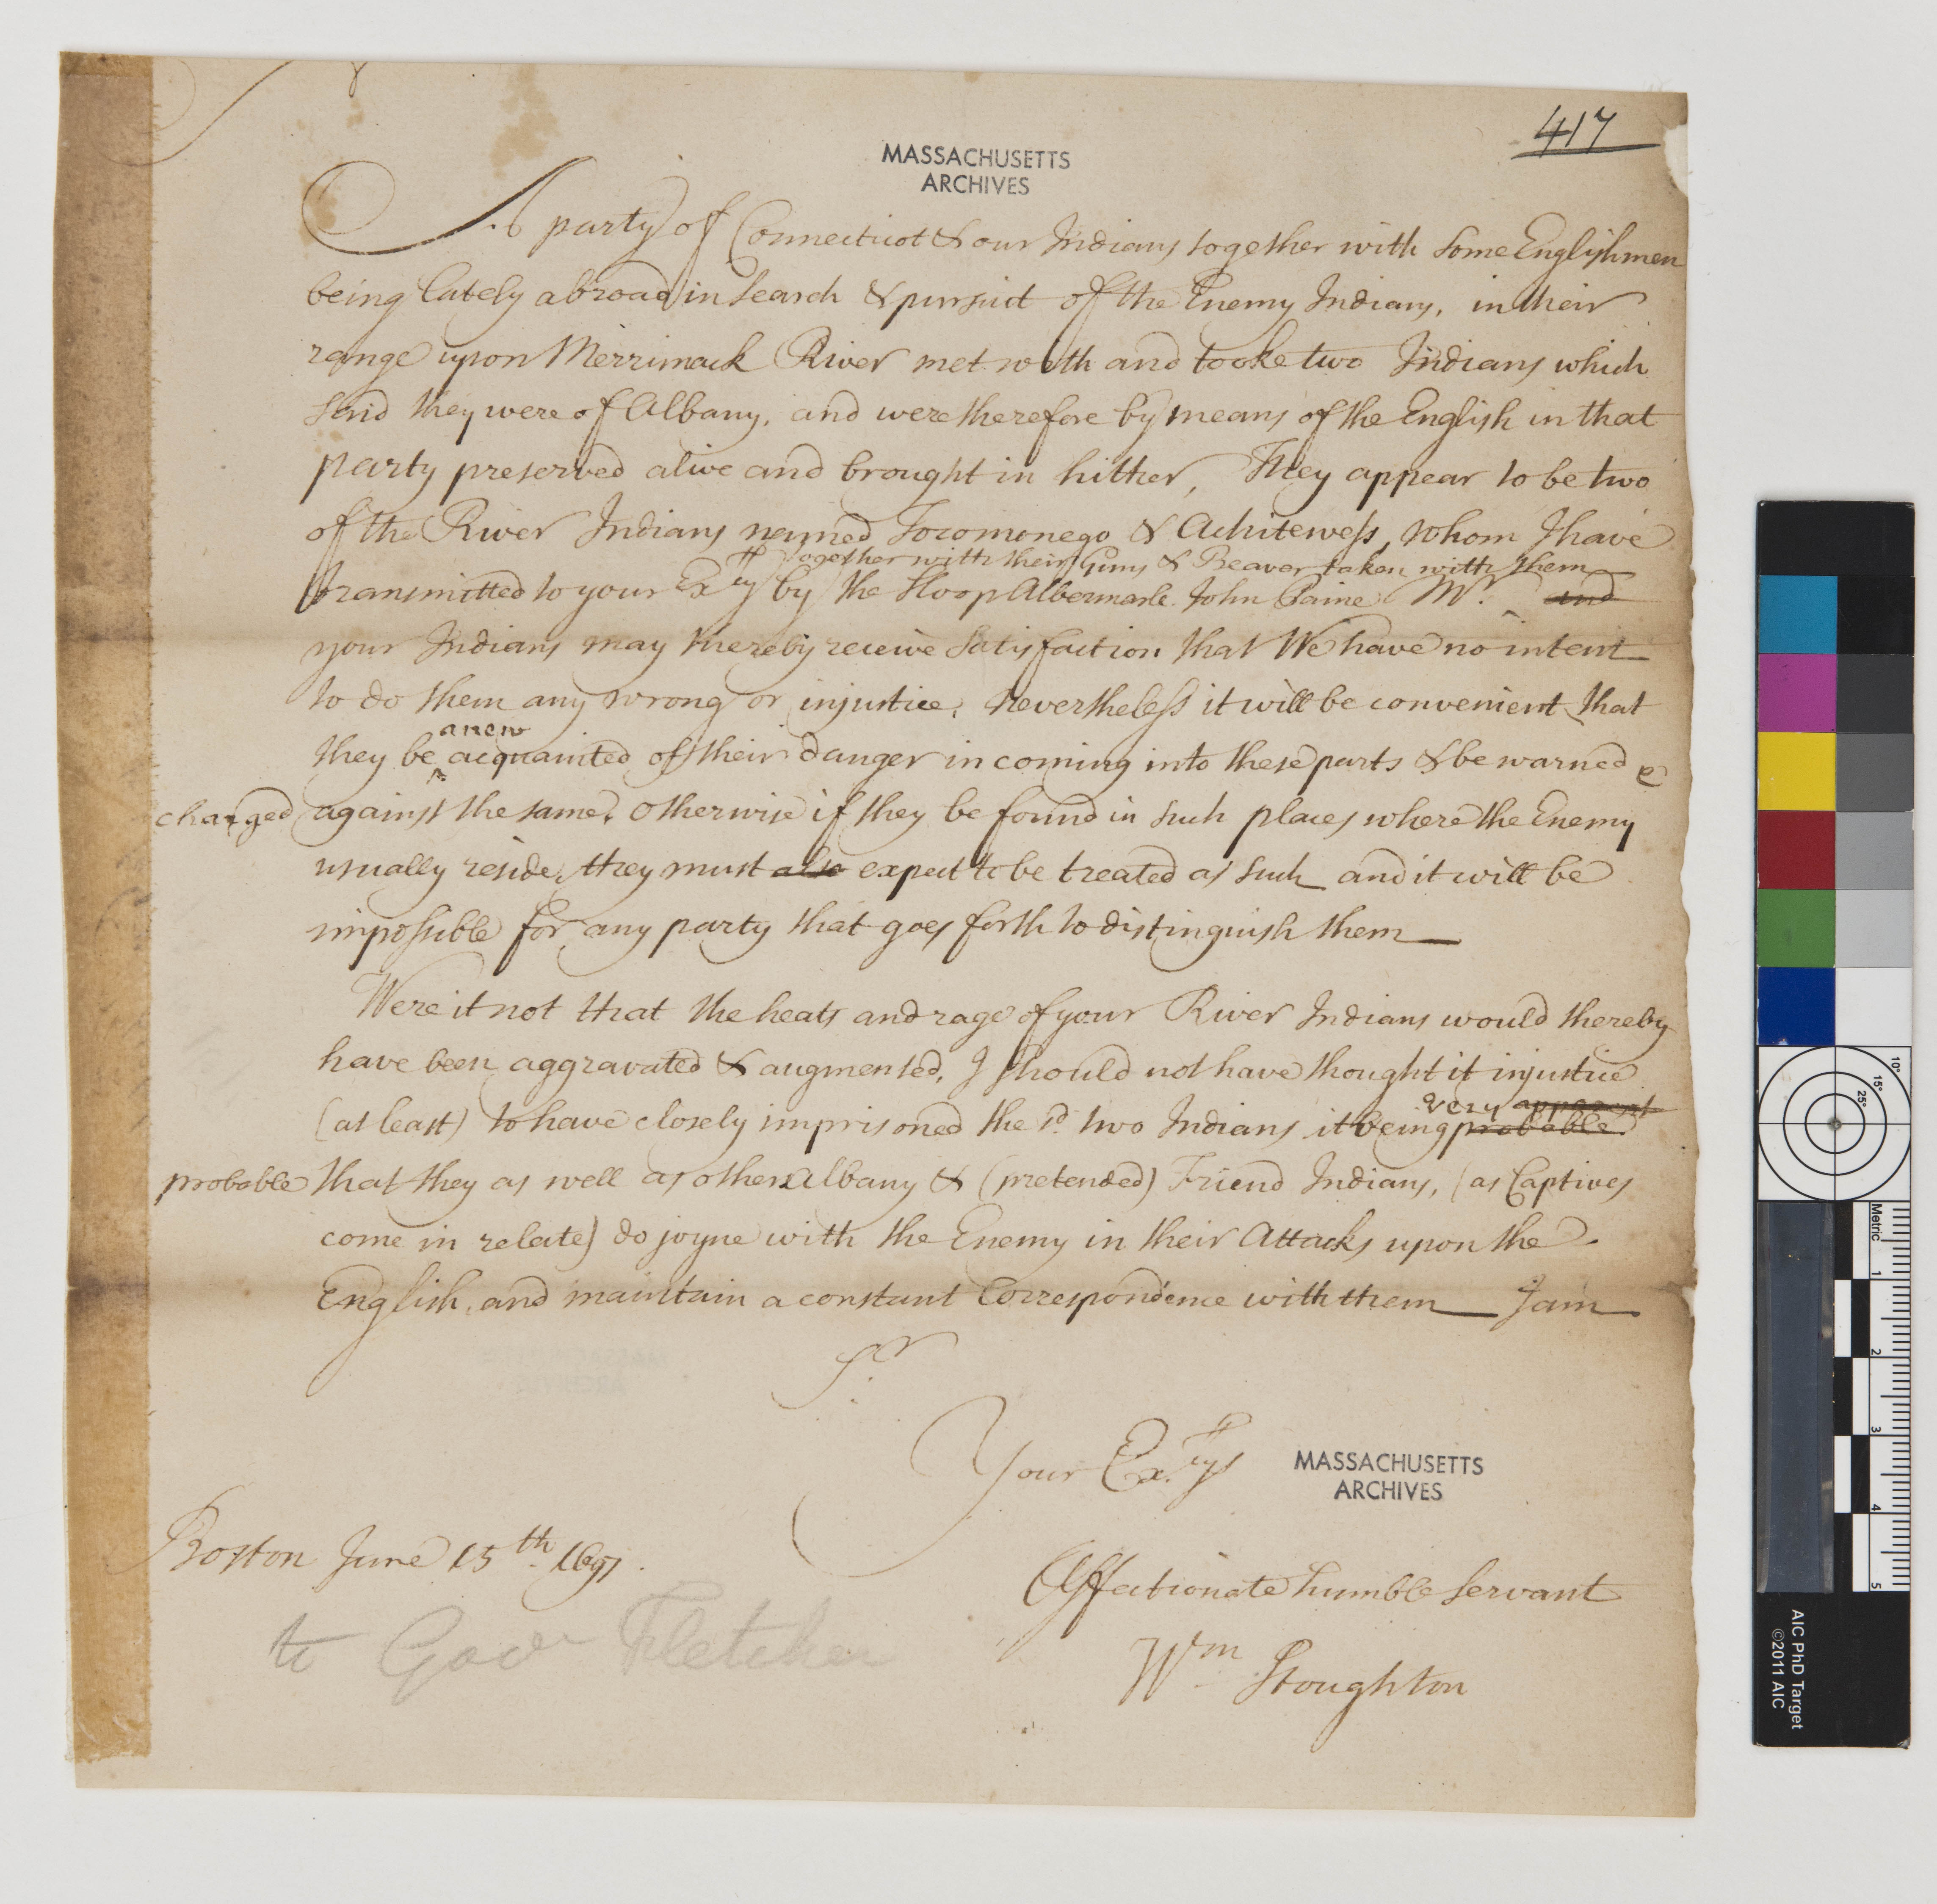 417
MASSACHUSETTS
ARCHIVES
A party of Connecticot & our Indians together with some Englishmen
being lately abroad in search & pursuit of the Enemy Indians, in their
range upon Merrimack River met with and tooke two Indians which
said they were of Albany, and were therefore by means of the English in that
party preserved alive and brought in hither, They appear to be two
of the River Indians named Tocomonego & Achitewess, whom I have
together with their Guns & Beaver taken with them
transmitted to your Excy by the Sloop Albermarle John Paine Mr. and
your Indians may thereby receive satisfaction that We have no intent
to do them any wrong or injustice, nevertheless it will be convenient that
anew
they be acquainted of their danger in coming into these parts & be warned &
charged against the same, otherwise if they be found in such places where the Enemy
usually reside, they must also expect to be treated as such and it will be
impossible for any party that goes forth to distinguish them
Were it not that the heats and rage of your River Indians would thereby
have been aggravated & augmented, I should not have thought it injustice
very apparent
(at least) to have closely imprisoned the sd. two Indians it being probable
probable that they as well as other Albany & (pretended) Friend Indians, (as Captives
come in relate) do joyne with the Enemy in their Attacks upon the
English, and maintain a constant Correspondence with them I am
Sr.
Your Ex.cys
MASSACHUSETTS
ARCHIVES
Boston June 15th. 1697.
Affectionate humble servant
to Govr Fletcher
Wm Stoughton
10°
15°
25°
Metric
1
2
3
4
5
AIC PhD Target
©2011 AIC